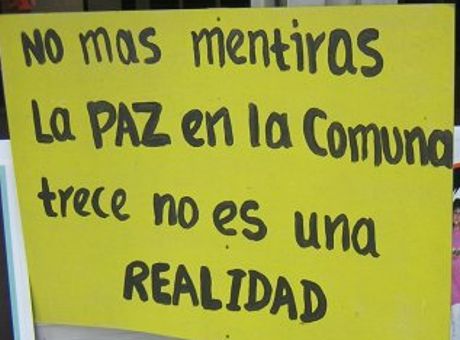 No mas mentiras
La PAZ en la Comuna
trece no es una
REALIDAD